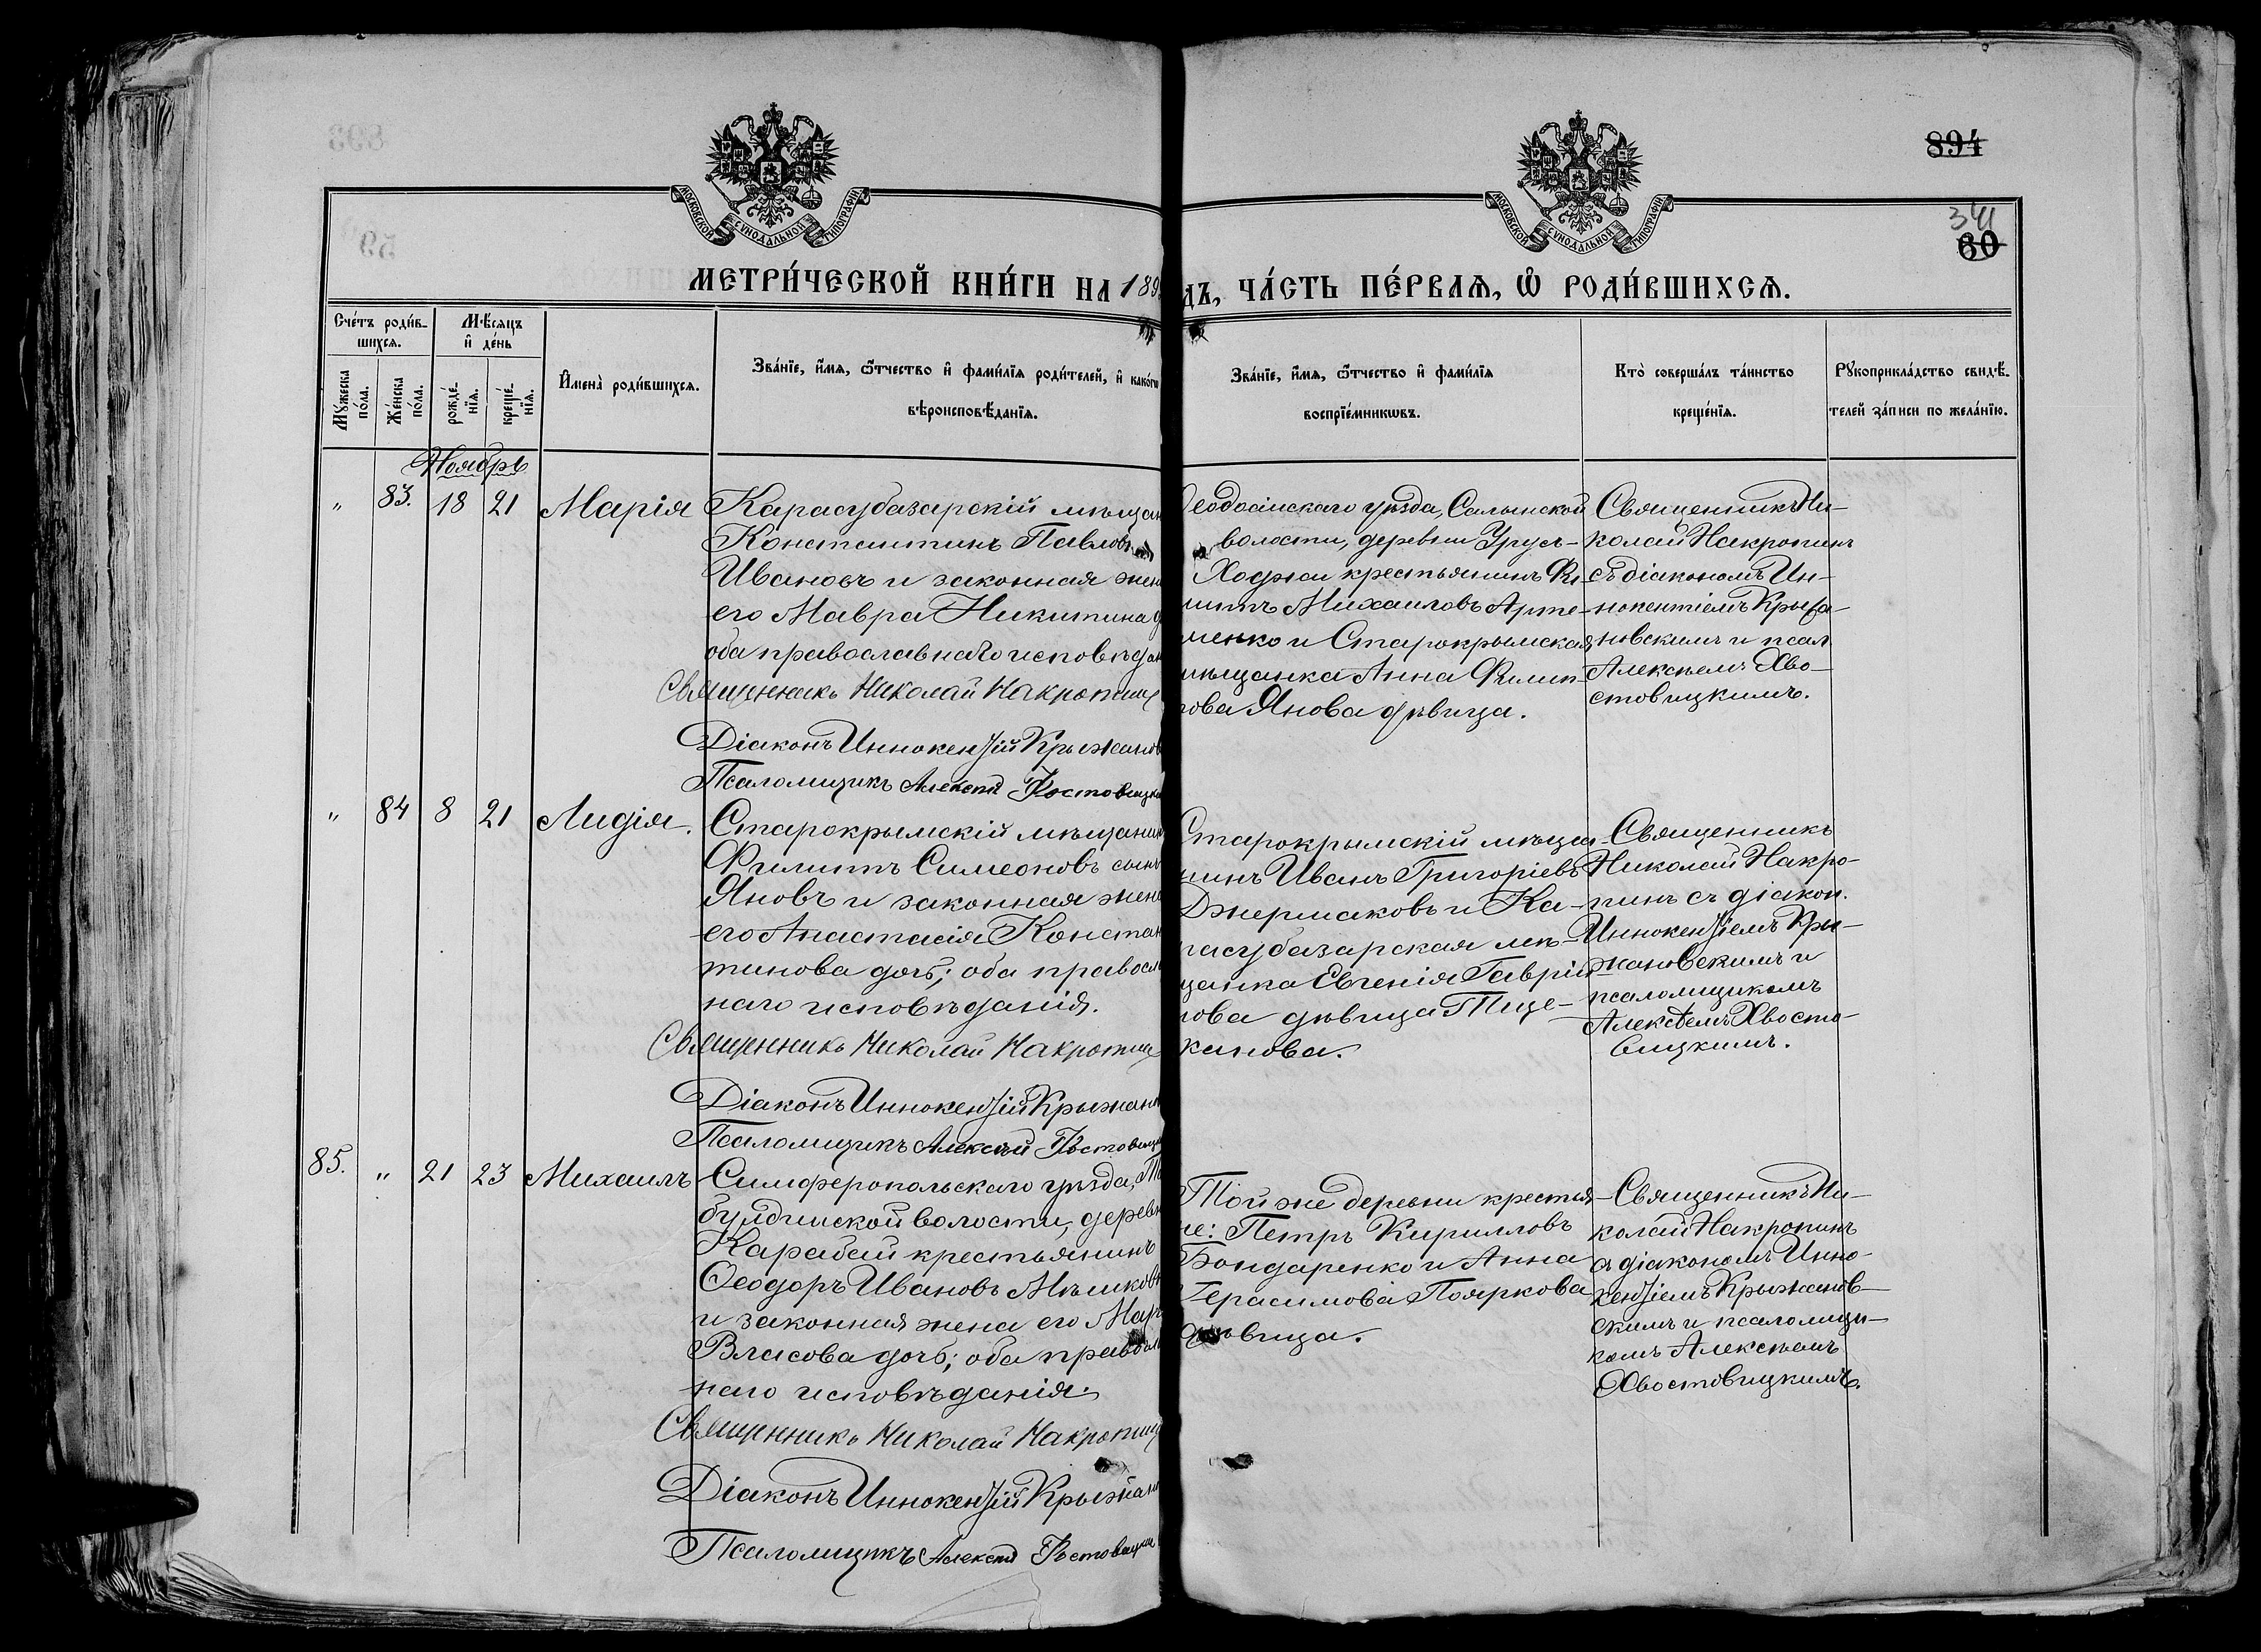 894
341
60
МОСКОВСКОЙ СѴНОДАЛЬНОЙ ТИПОГРАФІИ
МОСКОВСКОЙ СѴНОДАЛЬНОЙ ТИПОГРАФІИ
МЕТРИ́ЧЕСКОЙ КНИ́ГИ НА 189
ДЪ, ЧА́СТЬ ПЕ́РВАѦ, Ѡ҆ РОДИ́ВШИХСѦ.
Сче́тъ роди́в-
шихсѧ.
Мꙋ́жеска
по́ла.
Же́нска
по́ла.
Мѣ́сѧцъ
и҆ де́нь
рожде́-
нїѧ.
креще́-
нїѧ.
И҆мена̀ роди́вшихсѧ.
Зва́нїе, и҆́мѧ, ѻ҆́тчество и҆ фами́лїѧ роди́телей, и҆ како́гѡ
вѣроисповѣ́данїѧ.
Зва́нїе, и҆́мѧ, ѻ҆́тчество и҆ фами́лїѧ
воспрїе́мникѡвъ.
Кто̀ соверша́лъ та́инство
креще́нїѧ.
Рꙋкоприкла́дство свидѣ́-
телей за́писи по жела́нїю.
Ноябрь
" 83. 18 21 Марія
Карасубазарскій мѣщан
Константинъ Павловъ
Ивановъ и законная жен
его Мавра Никитина д
оба православнаго исповѣдан
Священникъ Николай Накропин
Діаконъ Иннокентій Крыжанов
Псаломщикъ Алексѣй Хвостовицкі
Ѳеодосійскаго уѣзда, Салынской
волости, деревни Урусъ-
Ходжи крестьянинъ Фи-
липпъ Михаиловъ Арте-
менко и Старокрымская
мѣщанка Анна Филип-
пова Янова дѣвица.
Священникъ Ни-
колай Накропинъ
съ діакономъ Ин-
нокентіемъ Крыжа-
новскимъ и псал.
Алексѣемъ Хво-
стовицкимъ.
" 84 8 21 Лидія.
Старокрымскій мѣщанин
Филиппъ Симеоновъ сынъ
Яновъ и законная жена
его Анастасія Констан
тинова дочь; оба правосл
наго исповѣданія.
Священникъ Николай Накропин
Діаконъ Иннокентій Крыжано
Псаломщикъ Алексѣй Хвостовицк
Старокрымскій мѣща-
нинъ Иванъ Григоріевъ
Джермаковъ и Ка-
расубазарская мѣ-
щанка Евгенія Гаврии-
лова дѣвица Тице-
канова.
Священникъ
Николай Накро-
пинъ съ діакон.
Иннокентіемъ Кры-
жановскимъ и
псаломщикомъ
Алексѣемъ Хвосто-
вицкимъ.
85. " 21 23 Михаилъ
Симферопольскаго уѣзда, Та
булдинской волости, деревн
Карабай крестьянинъ
Ѳеодоръ Ивановъ Мѣшковъ
и законная жена его Мар
Власова дочь; оба правосла
наго исповѣданія.
Священникъ Николай Накропин
Діаконъ Иннокентій Крыжано
Псаломщикъ Алексѣй Хвостовицкі
Той же деревни крестья-
не: Петръ Кирилловъ
Бондаренко и Анна
Герасимова Пояркова
дѣвица.
Священникъ Ни-
колай Накропинъ
съ діакономъ Инно-
кентіемъ Крыжанов-
скимъ и псаломщи-
комъ Алексѣемъ
Хвостовицкимъ.